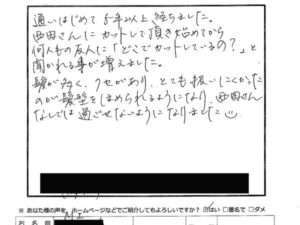 通いはじめて5年以上経ちました。
西田さんにカットして頂き始めてから
何人もの友人に「どこでカットしているの？」と
聞かれる事が増えました。
髪が多く、クセがあり、とても扱いにくかった
のが髪型をほめられるようになり、西田さん
なしでは過ごせないようになりました
※あなた様の声を、ホームページなどでご紹介してもよろしいですか？ ☑はい □匿名で □ダメ